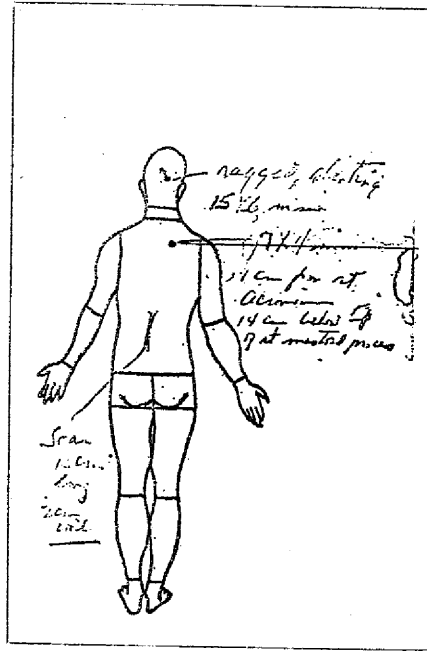 ragged, slanting
15 x 6 mm
7 x 4 mm
14 cm from rt
acromion
14 cm below tip
of rt mastoid process
Scar
long